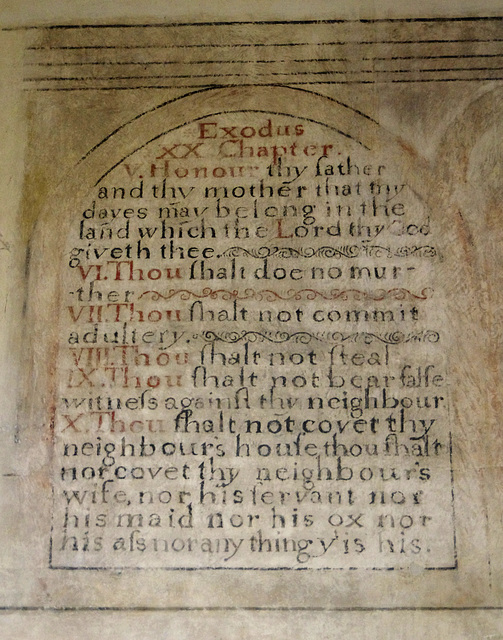 Exodus
XX Chapter.
V. Honour thy father
and thy mother that thy
dayes may be long in the
land which the Lord thy God
giveth thee.
VI. Thou ſhalt doe no mur-
-ther
VII. Thou ſhalt not commit
adultery.
VIII. Thou ſhalt not ſteal
IX. Thou ſhalt not bear falſe
witneſs againſt thy neighbour
X. Thou ſhalt not covet thy
neighbour's houſe thou ſhalt
nor covet thy neighbour's
wife, nor his ſervant nor
his maid nor his ox nor
his aſs nor any thing yt is his.